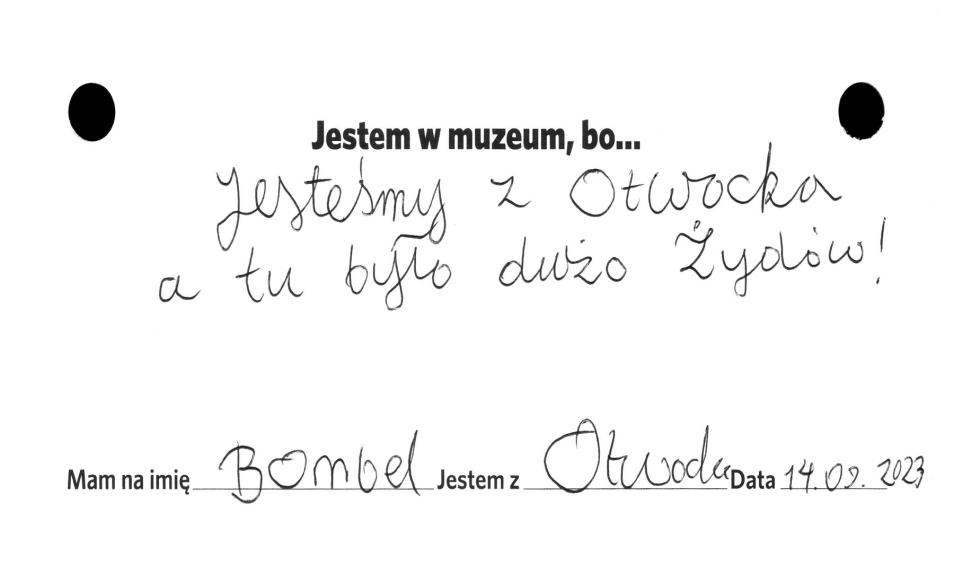 Jestem w muzeum, bo...
Jesteśmy z Otwocka
a tu było dużo Żydów!
Mam na imię Bombel Jestem z Otwocka Data 14.09.2023